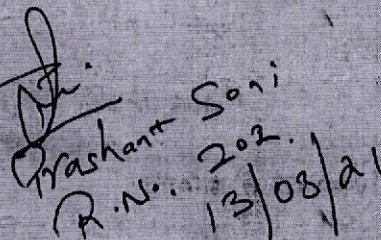 Prashant Soni
R.No. 202.
13/03/21